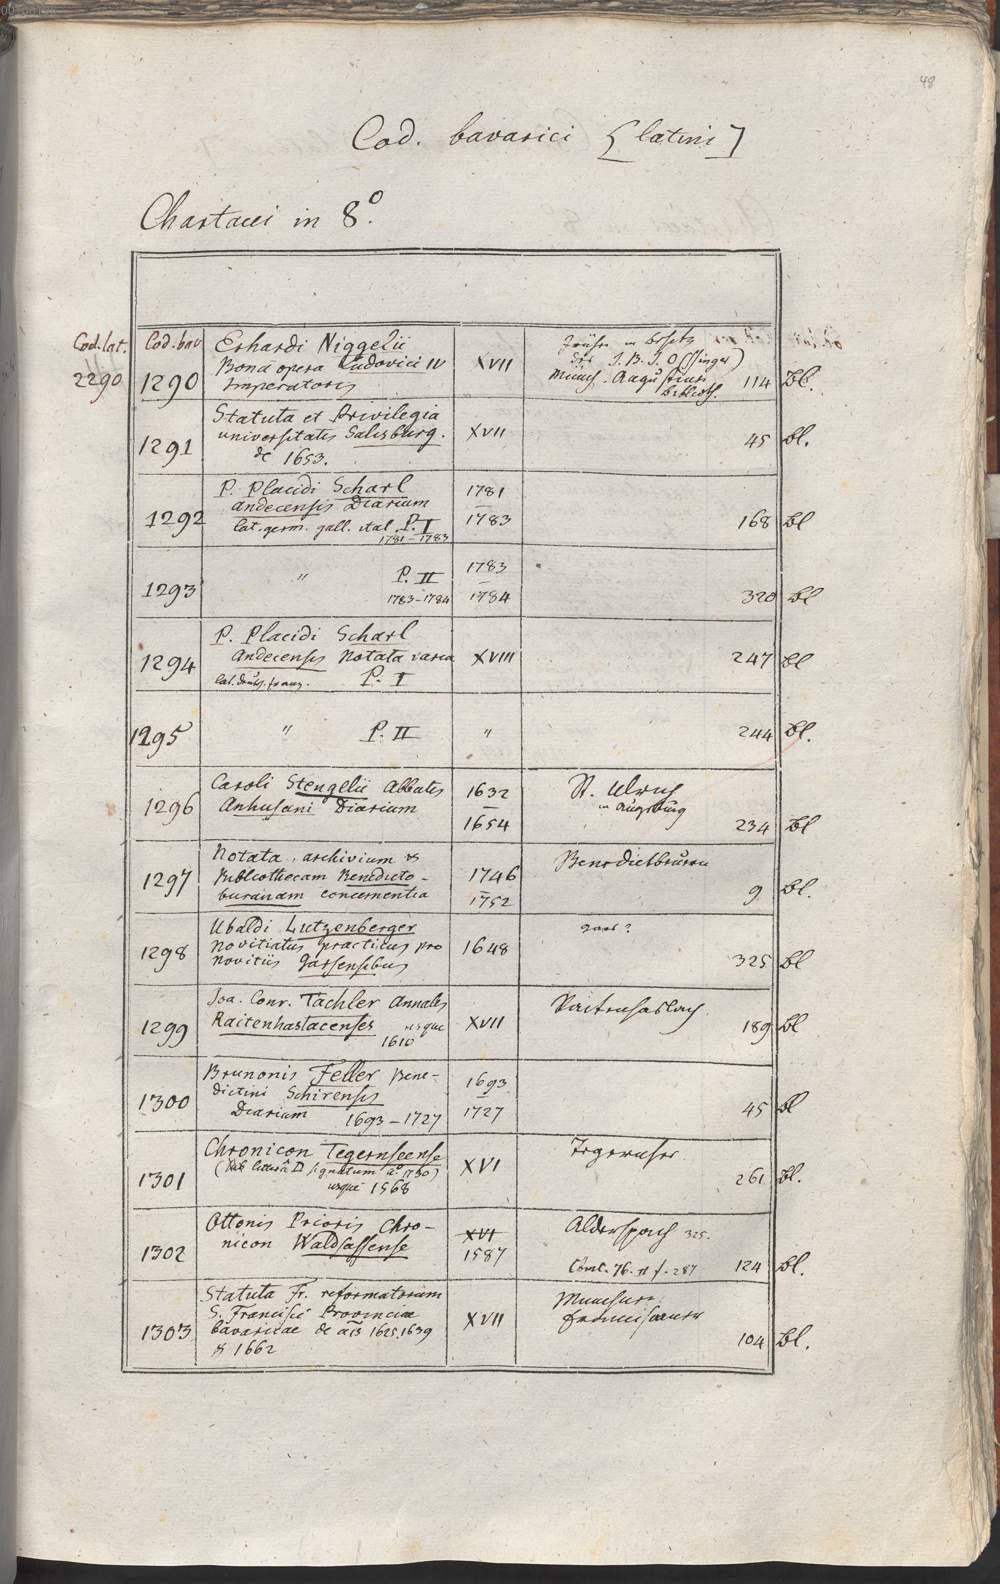 48
Cod. bavarici [latini]
Chartacei in 8°.
Cod. lat. 2290
Cod. bav 1290
Erhardi Niggelii
Bona opera Ludovici IV
Imperatoris
XVII
früher im Besitz
des J. B. J. O
Münch. Augustiner
biblioth.
114 Bl.
1291
Statuta et Privilegia
universitatis Salisburg.
de 1653.
XVII
45 Bl.
1292
P. Placidi Scharl
andecensis Diarium
lat. germ. gall. ital. P. I
1781-1783
1781
–
1783
168 Bl
1293
" P. II
1783-1784
1783
–
1784
320 Bl
1294
P. Placidi Scharl
andecensis Notata varia
lat. deutsch. franz. P. I
XVIII
247 Bl
1295
" P. II
"
244 Bl.
1296
Caroli Stengelii Abbatis
Anhusani Diarium
1632
–
1654
St. Ulrich
in Augsburg
234 Bl
1297
Notata, archivium &
Bibliothecam Benedicto-
buranam concernentia
1746
–
1752
Benedictbeuern
9 Bl.
1298
Ubaldi Lutzenberger
Novitiatus practicus pro
novitiis Garsensibus
1648
gars?
325 Bl
1299
Joa. Conr. Tachler Annales
Raitenhaslacenses usque
1610
XVII
Raitenhaslach
189 Bl
1300
Brunonis Feller Bene-
dictini Schirensis
Diarium 1693-1727
1693
–
1727
45 Bl
1301
Chronicon Tegernseense
(sub litterâ D signatum a° 1730)
usque 1568
XVI
Tegernsee
261 Bl.
1302
Ottonis Prioris Chro-
nicon Waldsassense
XVI
1587
Alderspach 325.
Cont. 76. f. 287
124 Bl.
1303
Statuta Fr. reformatorum
S. Francisci Provinciae
bavaricae de aīs 1625. 1639
& 1662
XVII
Münchner
franciscaner
104 Bl.